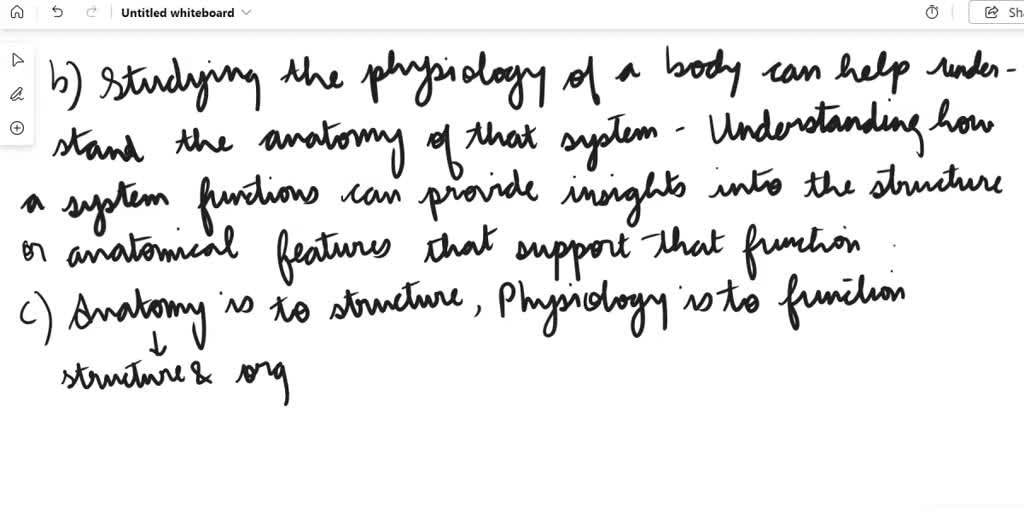 Untitled whiteboard
Sh
b) Studying the physiology of a body can help under-
stand the anatomy of that system. Understanding how
a system functions can provide insights into the structure
or anatomical features that support that function.
c) Anatomy is to structure, Physiology is to function
↓
structure & org